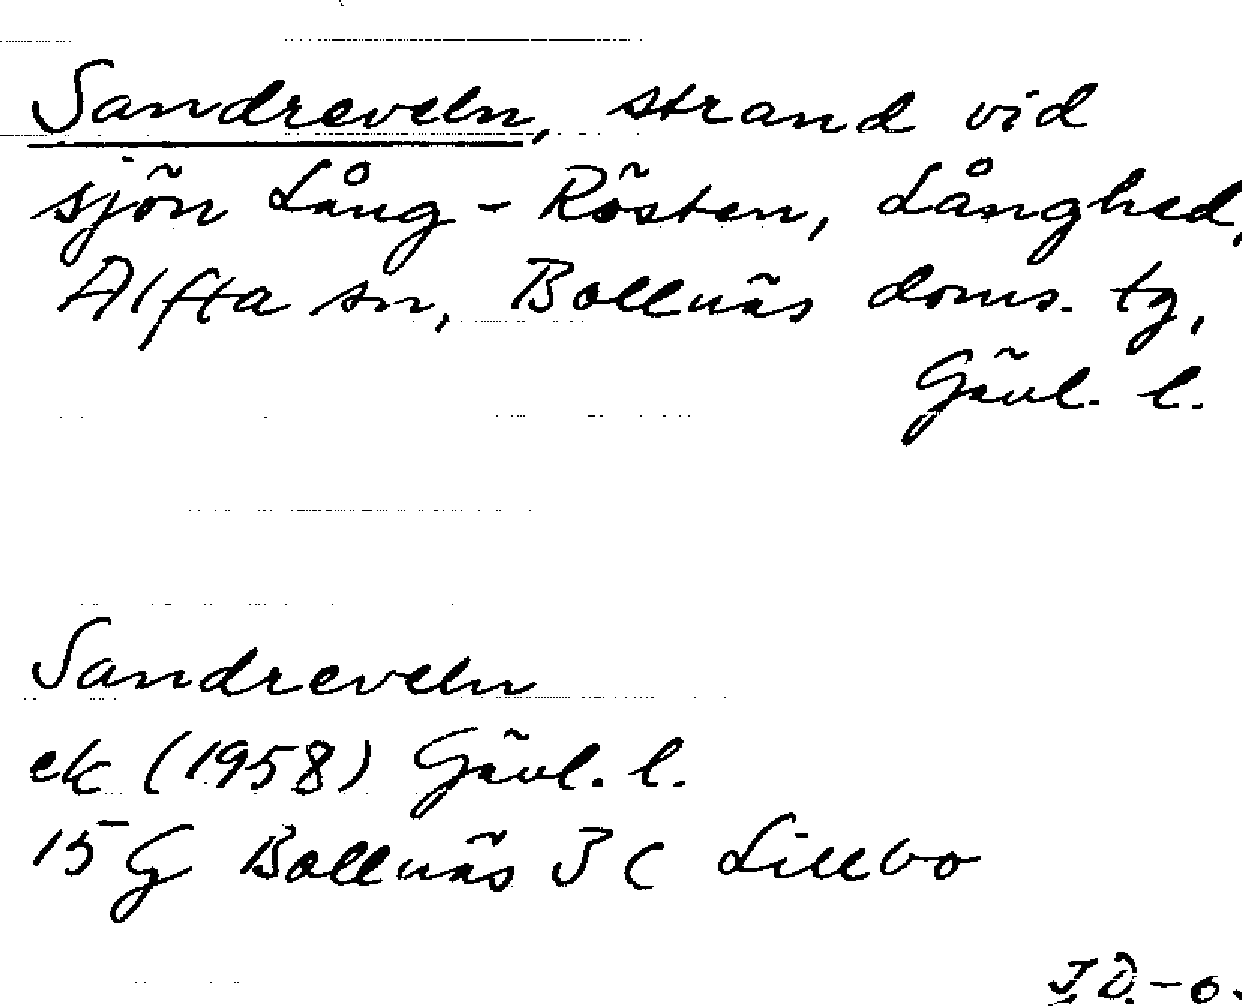 Sandreveln, strand vid
sjön Lång-Rösten, Långhed,
Alfta sn, Bollnäs doms. tg,
Gävl. l.
Sandreveln
ek (1958) Gävl. l.
15 G Bollnäs 3 C Lillbo